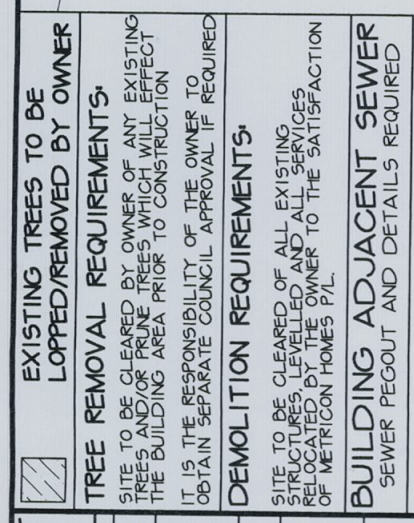 EXISTING TREES TO BE
LOPPED/REMOVED BY OWNER
TREE REMOVAL REQUIREMENTS:
SITE TO BE CLEARED BY OWNER OF ANY EXISTING
TREES AND/OR PRUNE TREES WHICH WILL EFFECT
THE BUILDING AREA PRIOR TO CONSTRUCTION
IT IS THE RESPONSIBILITY OF THE OWNER TO
OBTAIN SEPARATE COUNCIL APPROVAL IF REQUIRED
DEMOLITION REQUIREMENTS:
SITE TO BE CLEARED OF ALL EXISTING
STRUCTURES, LEVELLED AND ALL SERVICES
RELOCATED BY THE OWNER TO THE SATISFACTION
OF METRICON HOMES P/L.
BUILDING ADJACENT SEWER
SEWER PEGOUT AND DETAILS REQUIRED